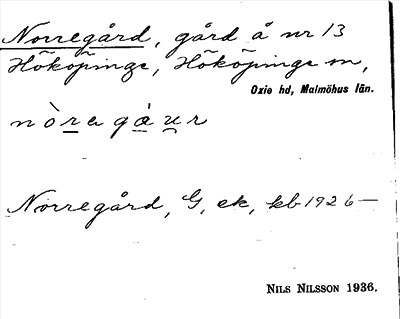 Norregård, gård å nr 13
Hököpinge, Hököpinge sn,
Oxie hd, Malmöhus län.
nòra gȧur
Norregård, G, ek, kb 1926—
NILS NILSSON 1936.